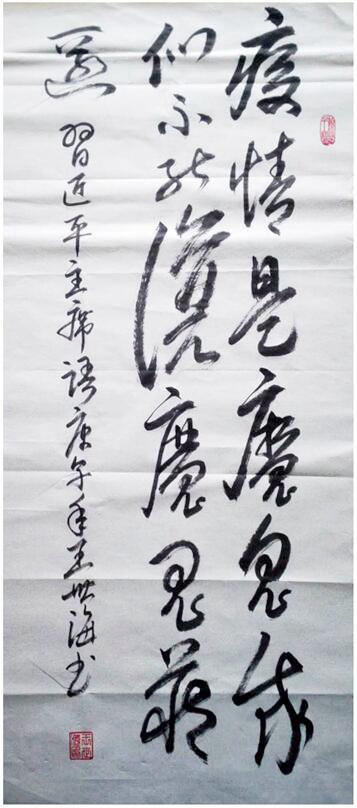 疫情是魔鬼我
们不能讓魔鬼藏
匿 習近平主席語庚子年王世海书